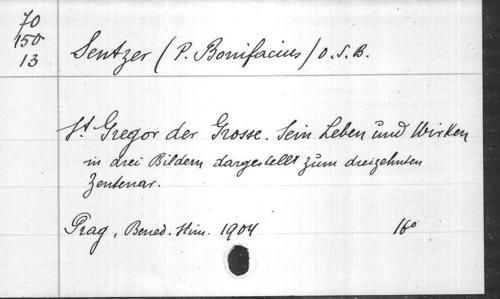 70
150
13
Sentzer (P. Bonifacius) O.S.B.
St Gregor der Grosse. Sein Leben und Wirken
in drei Bildern dargestellt zum dreizehnten
Zentenar.
Prag, Bened. Stim. 1904 16°